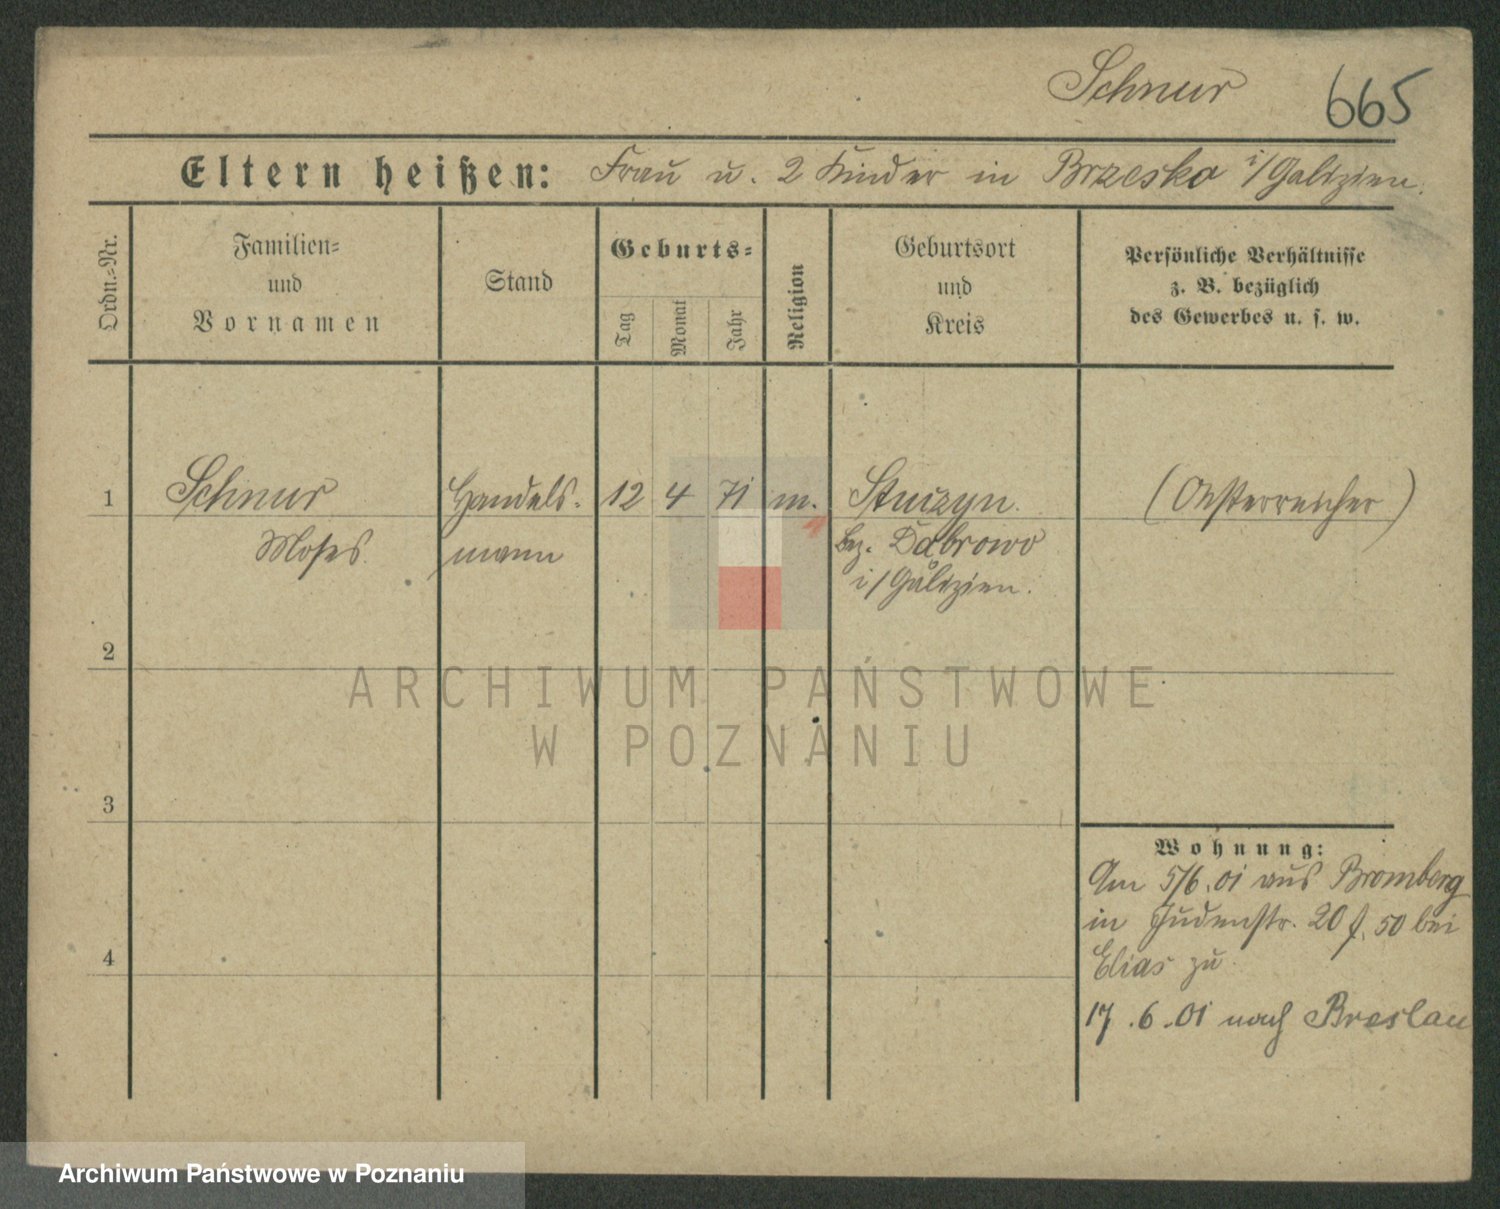 Schnur 665
Eltern heißen: Frau u. 2 Kinder in Brzesko i/Galizien.
Ordn.-Nr.
Familien-
und
Vornamen
Stand
Geburts-
Tag
Monat
Jahr
Religion
Geburtsort
und
Kreis
Persönliche Verhältnisse
z. B. bezüglich
des Gewerbes u. s. w.
1 Schnur Handels- 12 4 71 m. (Oesterreicher)
Moses mann Bez. Dąbrowo
i/Galizien.
2
ARCHIWUM PAŃSTWOWE
W POZNANIU
3
Wohnung:
Am 5/6.01 aus Bromberg
in Judenstr. 20 f. 50 bei
Elias zu
4
17.6.01 nach Breslau
Archiwum Państwowe w Poznaniu